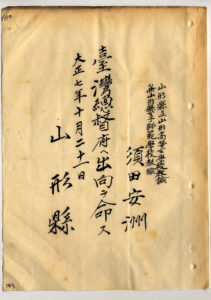 160
山形縣立山形高等女學校教諭
兼山形縣女子師範學校教諭
須田安洲
臺灣總督府ヘ出向ヲ命ス
大正七年十月二十二日
山形縣